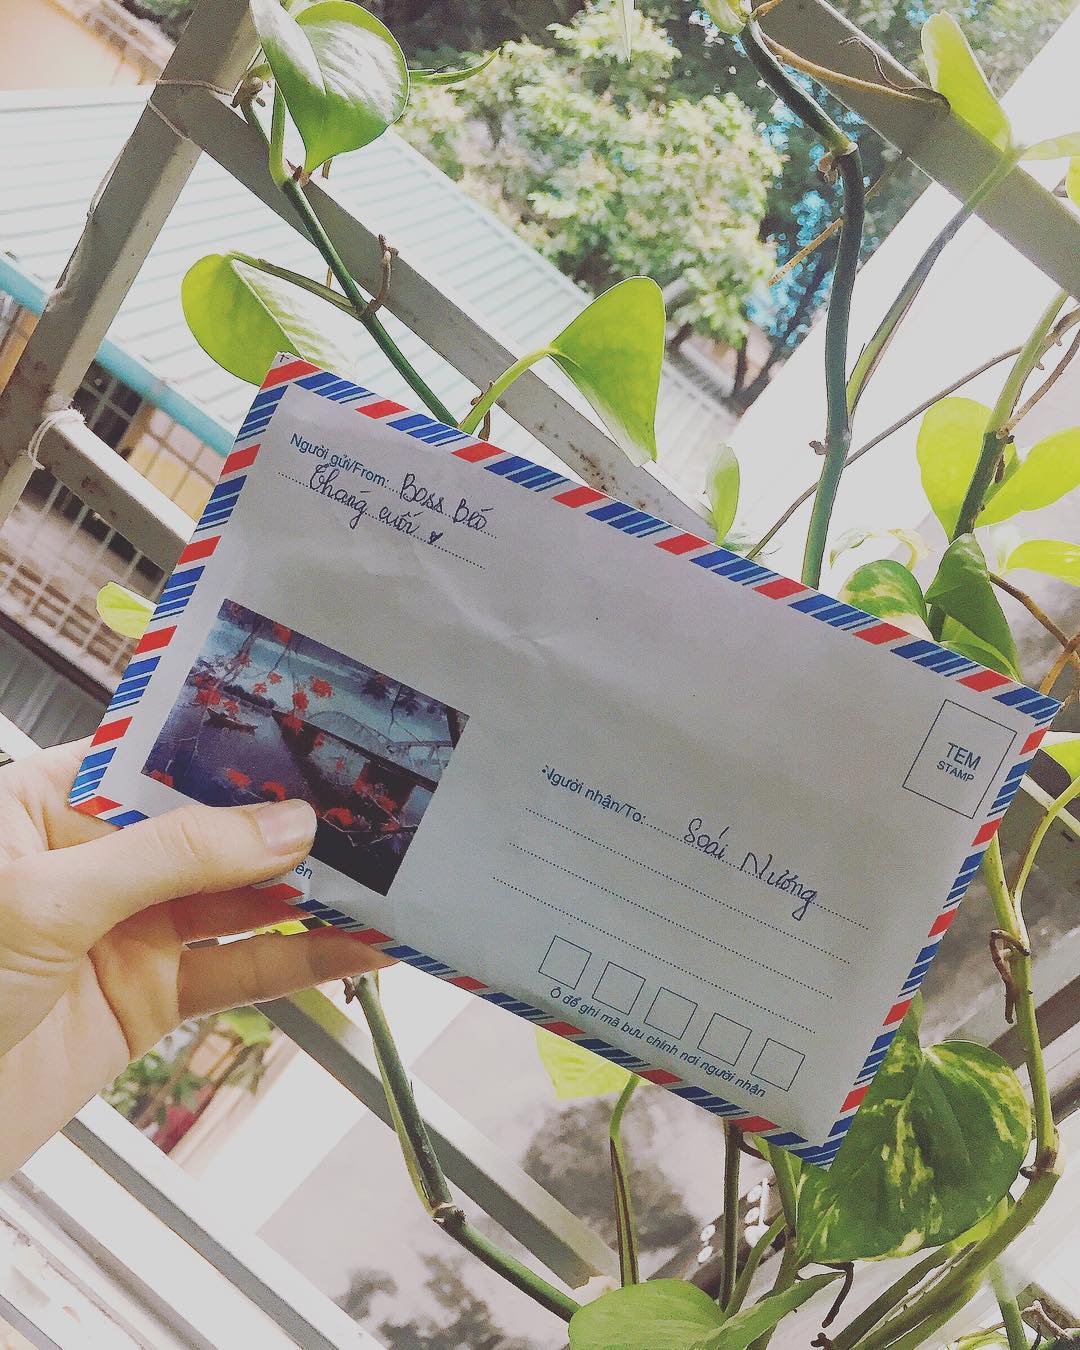 Người gửi/From: Boss Béo
Tháng cưới
TEM
STAMP
Người nhận/To: Soái Nương
Ô để ghi mã bưu chính nơi người nhận